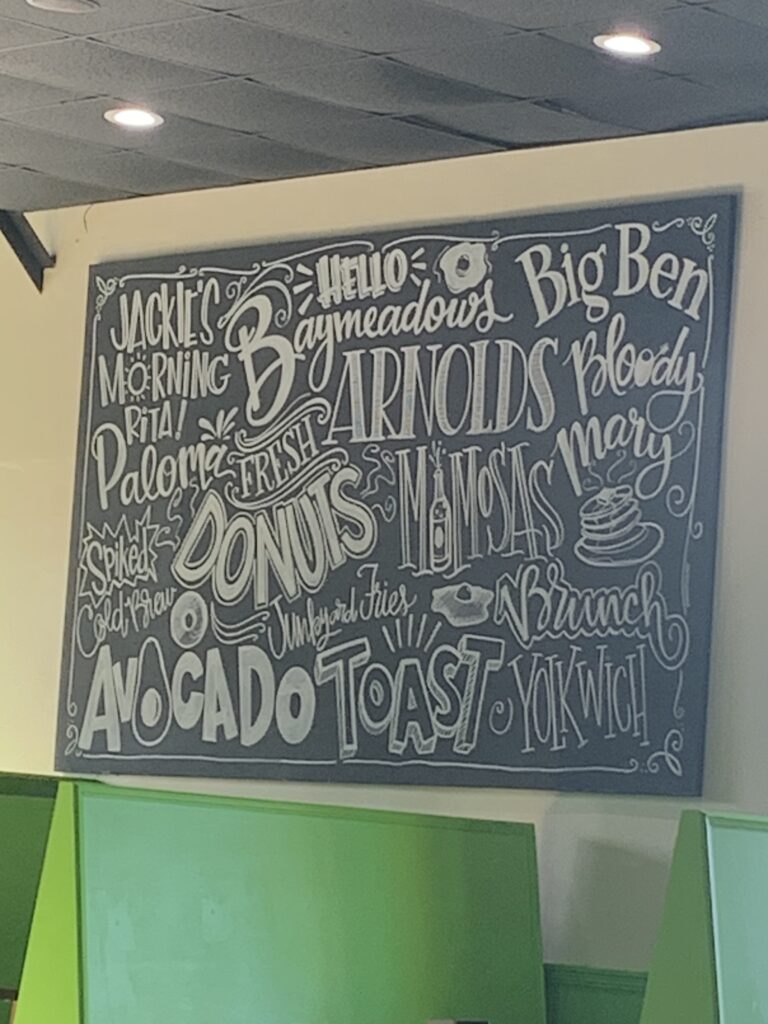 JACKIE'S
MORNING
RITA!
HELLO
Baymeadows
Big Ben
ARNOLDS
Bloody
Mary
Paloma
FRESH
DONUTS
MIMOSAS
Spiked
Cold Brew
Junkyard Fries
Brunch
AVOCADO TOAST
YOLKWICH